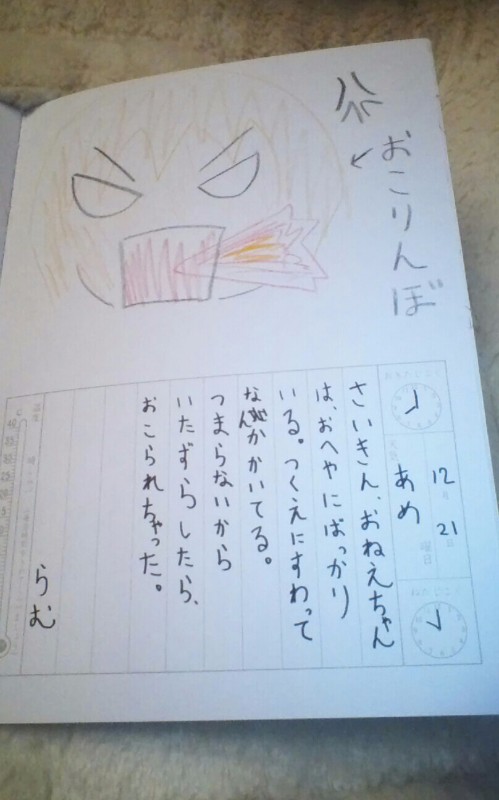 おこりんぼ
おきたじこく
12月
21日
曜日
天気
あめ
ねたじこく
さいきん、おねえちゃん
は、おへやにばっかり
いる。つくえにすわって
なんかかいてる。
つまらないから
いたずらしたら、
おこられちゃった。
らむ